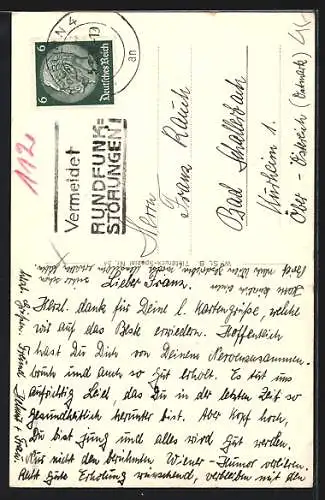 6 6
Deutsches Reich
N 4
-13
an
112
Vermeidet
RUNDFUNK=
STÖRUNGEN!
Herrn
Franz Rauch
Bad Schallerbach
Kurheim 1.
Ober-Österreich (Ostmark)
Lieber Franz.
Herzl. dank für Deine l. Kartengrüße, welche
wir auf das Beste erwiedern. Hoffentlich
hast Du Dich von Deinem Nervenzusammen-
bruch und auch so gut erholt. Es tut uns
aufrichtig Leid, das Du in der letzten Zeit so
gesundheitlich herunter bist. Aber Kopf hoch,
Du bist jung und alles wird gut werden.
Nur nicht den berühmten Wiener-Humor verlieren.
Recht gute Erholung wünschend, verbleiben mit den
Herzl. Grüßen